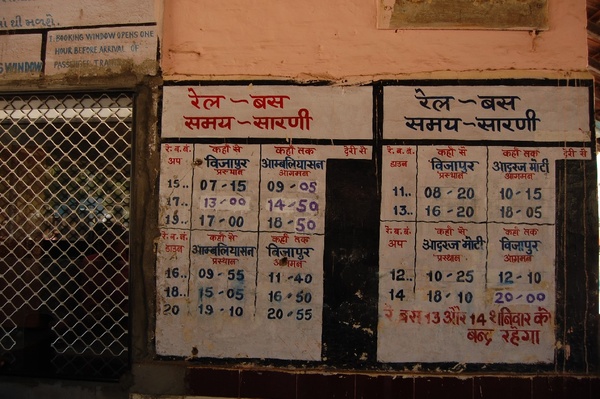 1. BOOKING WINDOW OPENS ONE
HOUR BEFORE ARRIVAL OF
रेल ~ बस
समय-सारणी
रे.ब.सं. कहाँ से कहाँ तक देरी से
अप विजापुर आम्बलियासन
प्रस्थान आगमन
15.. 07-15 09-05
17.. 13-00 14-50
19.. 17-00 18-50
रे.ब.सं. कहाँ से कहाँ तक
डाउन आम्बलियासन विजापुर
प्रस्थान आगमन
16.. 09-55 11-40
18.. 15-05 16-50
20 19-10 20-55
रेल ~ बस
समय-सारणी
रे.ब.सं. कहाँ से कहाँ तक देरी से
डाउन विजापुर आदरज मोटी
प्रस्थान आगमन
11.. 08-20 10-15
13.. 16-20 18-05
रे.ब.सं. कहाँ से कहाँ तक
अप आदरज मोटी विजापुर
प्रस्थान आगमन
12.. 10-25 12-10
14 18-10 20-00
रे बस 13 और 14 शनिवार को
बन्द रहेगा